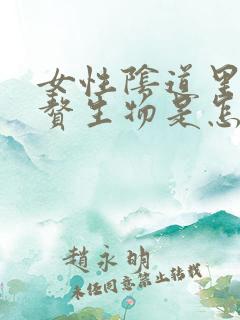 女性陰道里
贅生物是怎
趙永明
未经同意禁止转载